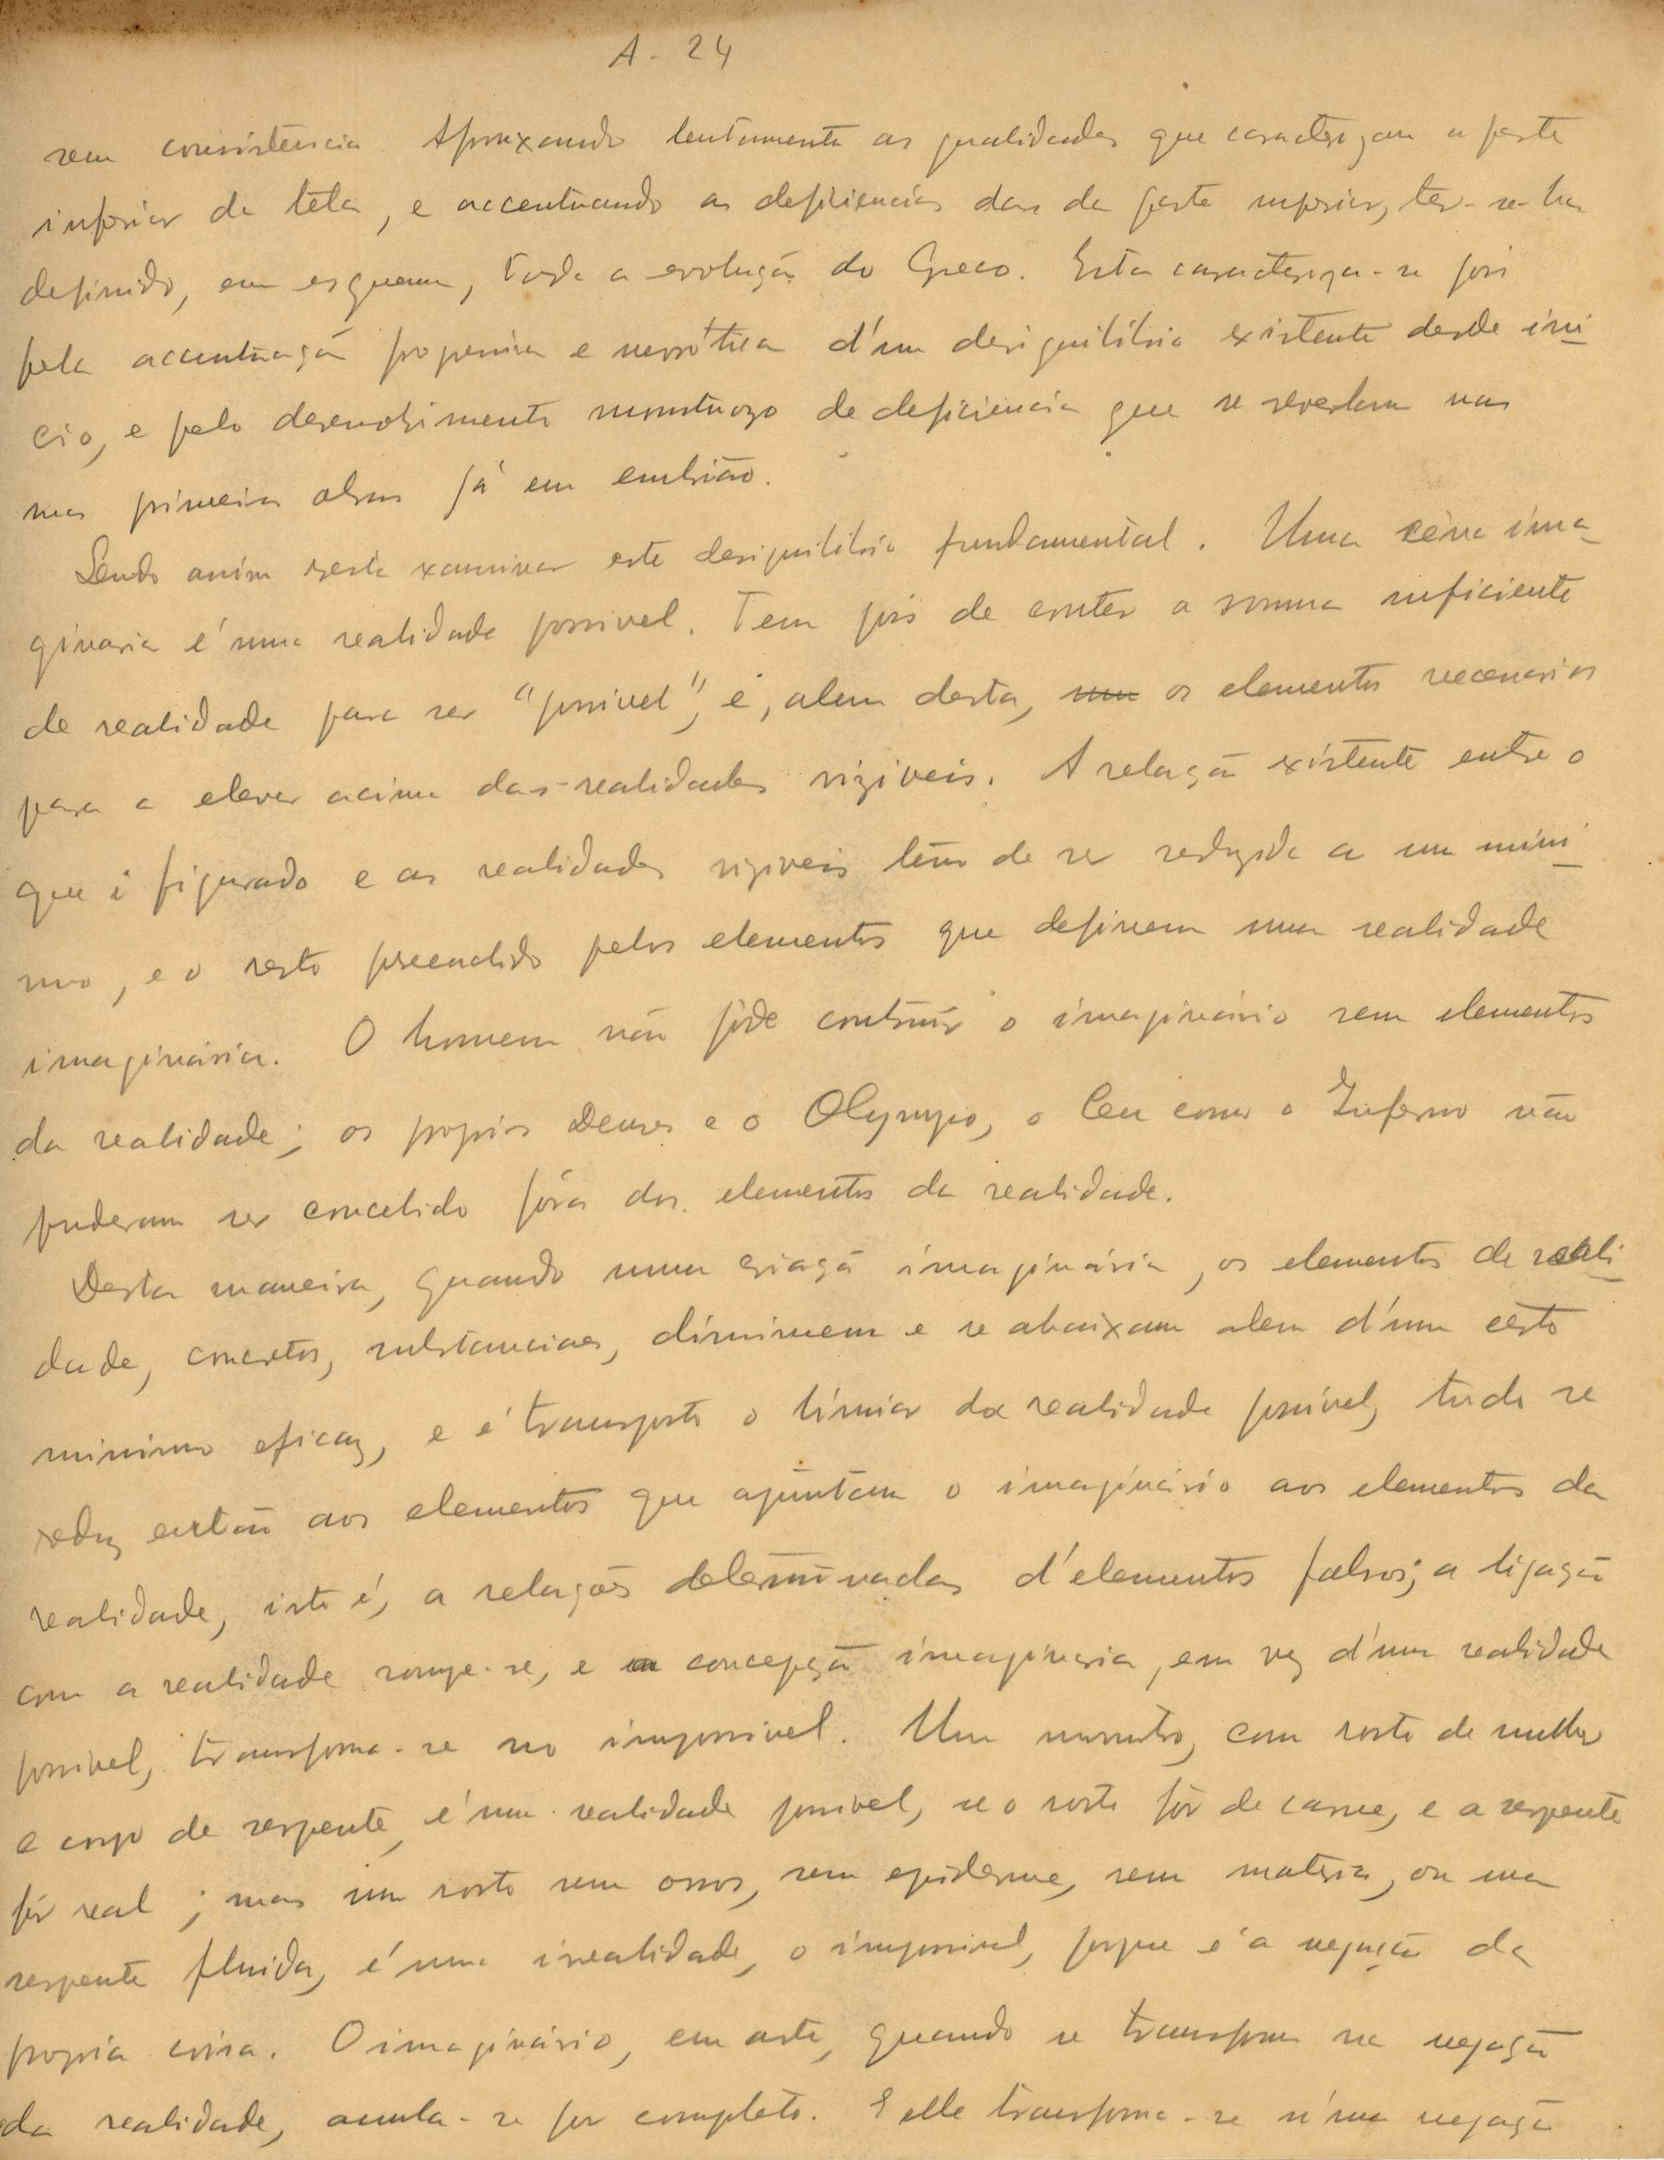 A - 24
sem consistencia. Afrouxando lentamente as qualidades que caracterizam a parte
inferior da téla, e accentuando as deficiencias das da parte superior, ter-se-ha
definido, em esquema, toda a evolução do Greco. Esta caracteriza-se pois
pela accentuação progressiva e nevrótica d'um desiquilibrio existente desde ini
cio, e pelo desenvolvimento monstruozo de deficiencia que se revelam nas
nas primeiras obras já em embrião.
Sendo assim resta examinar este desiquilibrio fundamental. Uma cêna ima
ginaria é uma realidade possivel. Tem pois de conter a somma suficiente
de realidade para ser "possivel", e, alem desta, os elementos necessarios
para a elevar acima das realidades viziveis. A relação existente entre o
que é figurado e as realidades viziveis têm de ser reduzida a um mini
mo, e o resto preenchido pelos elementos que definem uma realidade
imaginária. O homem não póde construir o imaginário sem elementos
da realidade; os proprios Deuses e o Olympo, o Ceu como o Inferno não
puderam ser concebido fóra dos elementos da realidade.
Desta maneira, quando uma criação imaginária, os elementos de reali
dade, concretos, substanciaes, diminuem e se abaixam alem d'um certo
minimo eficaz, e é transposto o limiar da realidade possivel, tudo se
reduz então aos elementos que ajuntam o imaginário aos elementos da
realidade, isto é, a relações determinadas d'elementos falsos; a ligação
com a realidade rompe-se, e a concepção imaginaria, em vez d'uma realidade
possivel, transforma-se no impossivel. Um monstro, com rosto de mulher
e corpo de serpente, é uma realidade possivel, se o rosto fôr de carne, e a serpente
fôr real; mas um rosto sem ossos, sem epiderme, sem materia, ou uma
serpente fluida, é uma irrealidade, o impossivel, porque é a negação da
propria coisa. O imaginário, em arte, quando se transforma na negação
da realidade, anula-se por completo. E elle transforma-se n'uma negação